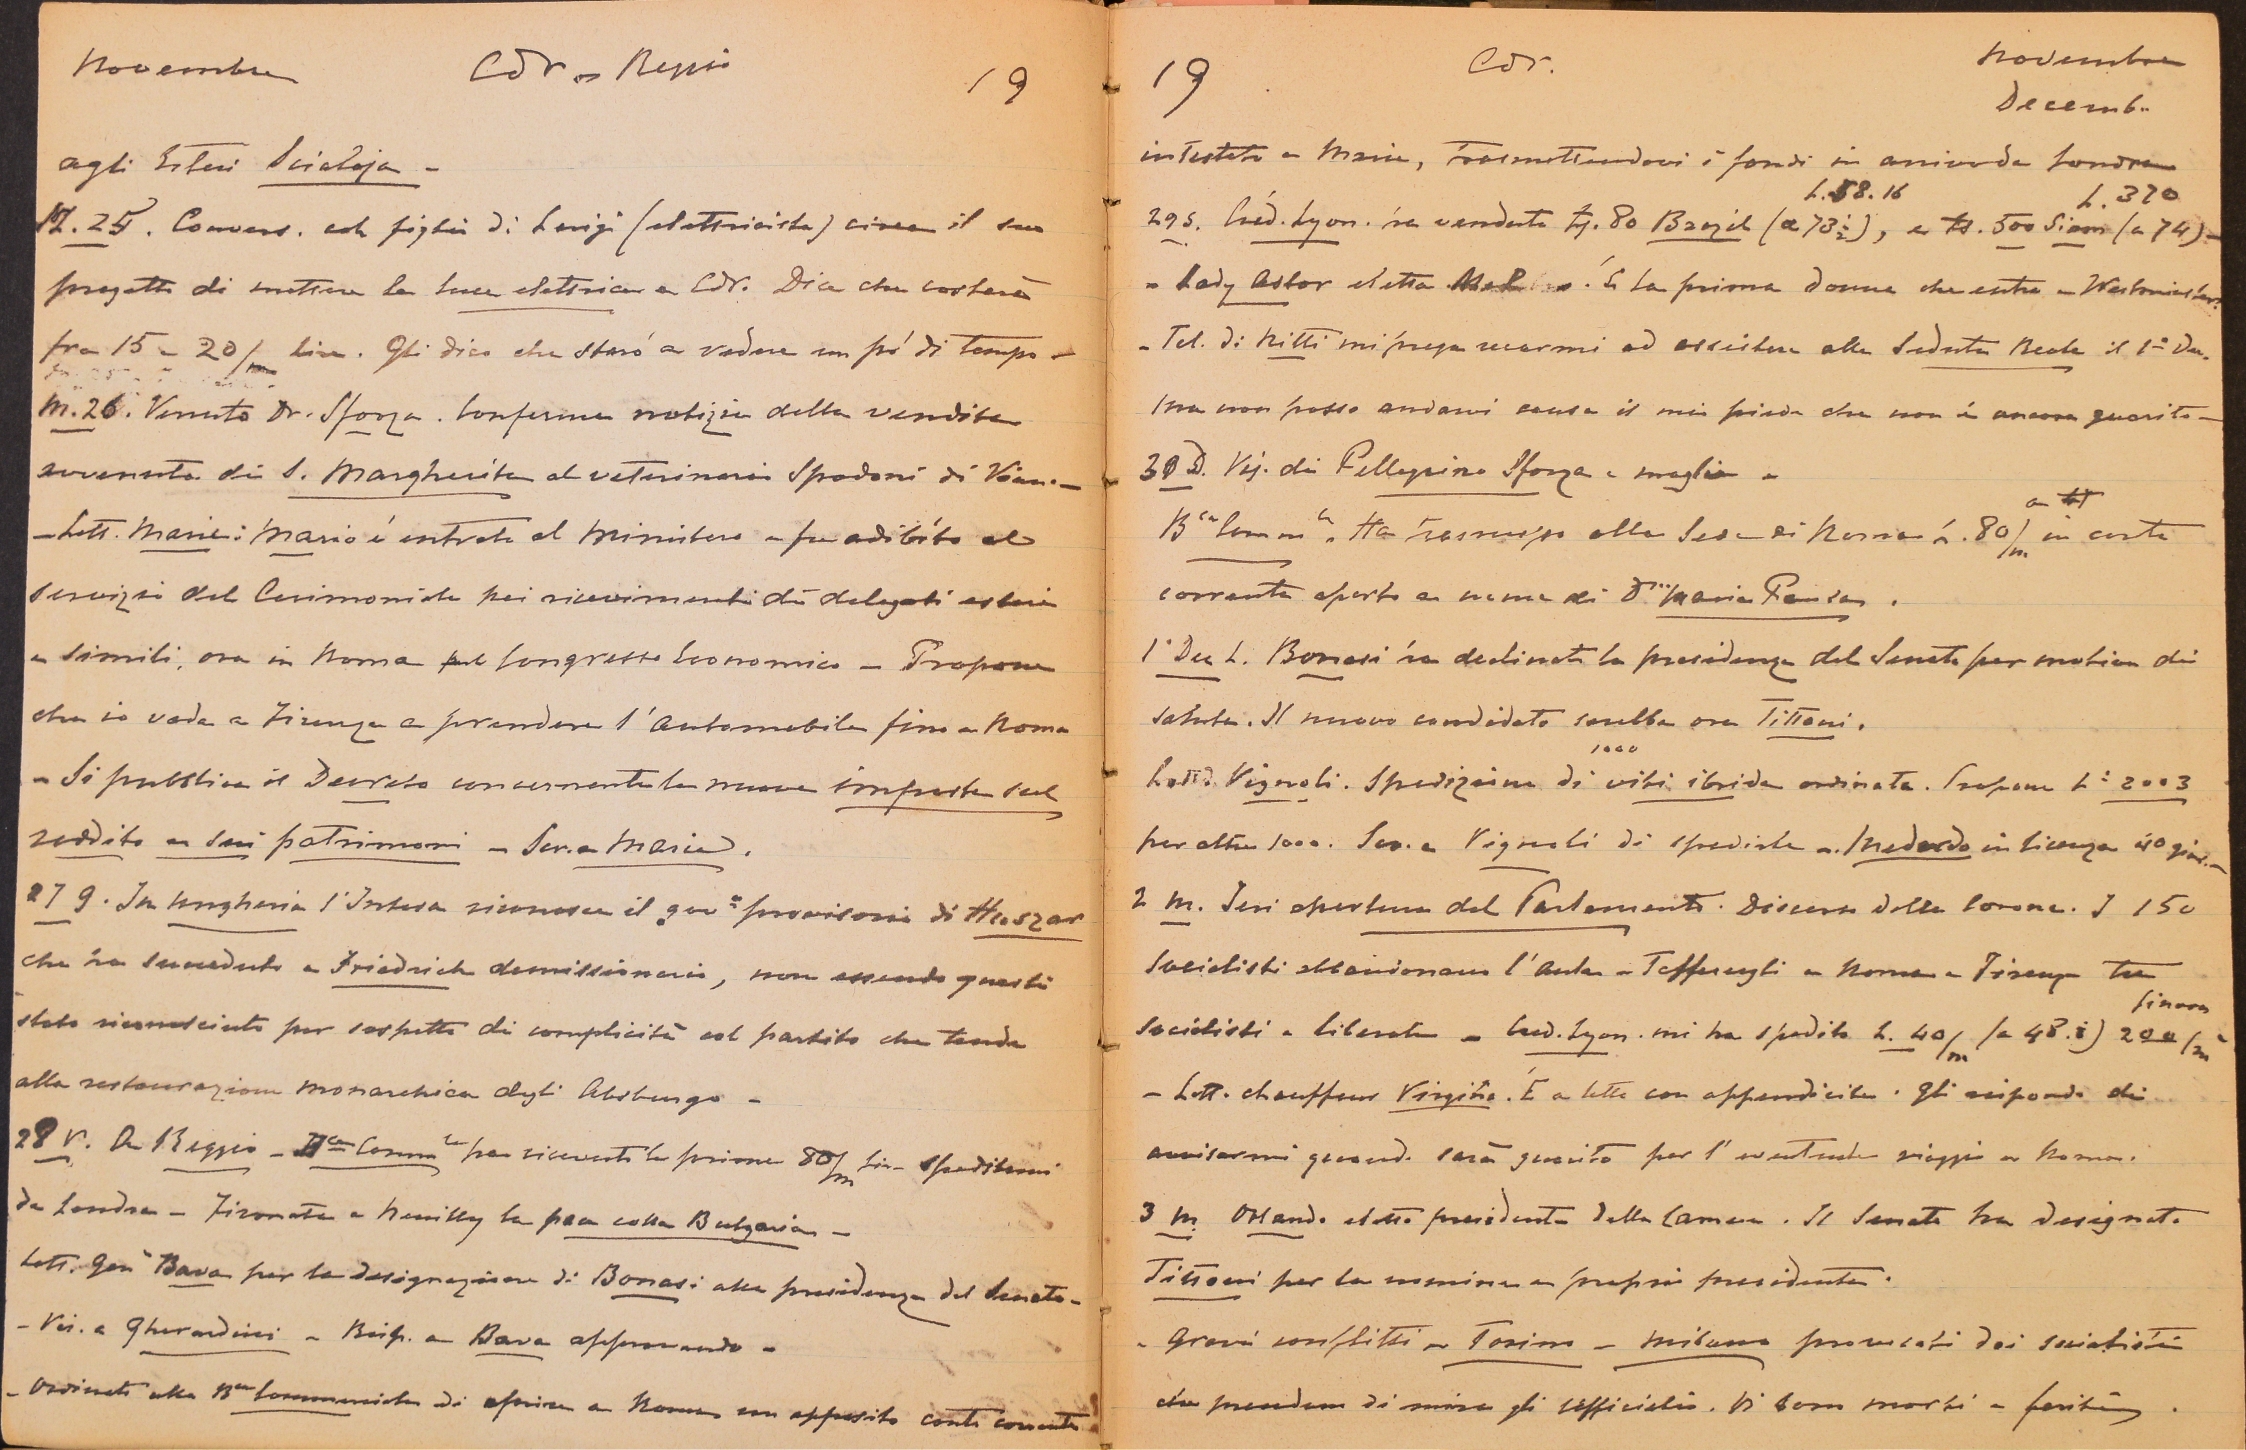 Novembre Cdr. Reggio 19
agli Esteri Scialoja -
M. 25. Convers. col figlio di Luigi (elettricista) circa il suo
progetto di mettere la luce elettrica a Cdr. Dice che costerà
fra 15 e 20/m lire. Gli dico che starò a vedere un pó di tempo -
M. 26. Venuto Dr. Sforza. Conferma notizia della vendita
avvenuta di S. Margherita al veterinario Spadoni di Vian. -
- Lett. Marie: Mario é entrato al Ministero e fu adibito al
servizio del Cerimoniale pei ricevimenti di delegati esteri
e simili, ora in Roma pel Congresso Economico - Propone
che io vada a Firenze a prendere l'automobile fino a Roma
- Si pubblica il Decreto concernente le nuove imposte sul
reddito e sui patrimoni - Scr. a Marie.
27 G. In Ungheria l'Intesa riconosce il gov.o provvisorio di Huszar
che ha succeduto a Friedrich demissionario, non essendo questi
stato riconosciuto per sospetto di complicità col partito che tende
alla restaurazione monarchica degli Absburgo -
28 V. Da Reggio - Bca Comm.le per ricevuti le prime 80/m lire speditemi
da Londra - Firmata a Neuilly la pace colla Bulgaria -
Lett. Gen. Bava per la designazione di Bonasi alla presidenza del Senato -
- Vis. a Gherardini - Risp. a Bava approvando -
- Ordinato alla Bca Commerciale di aprire a Roma un apposito conto corrente
19 Cdr. Novembre
Decemb.
intestato a Marie, trasmettendovi i fondi in arrivo da Londra
L. 58.16 L. 370
29 S. Créd. Lyon. ha venduto 80 Brazil (a 73½), e 500 Siam (a 74) -
- Lady Astor eletta. É la prima donna che entra a Westminster.
- Tel. di Nitti mi prega recarmi ad assistere alla Seduta Reale il 1° De.
ma non posso andarvi causa il mio piede che non é ancora guarito -
30 D. Vis. di Pellegrino Sforza e moglie -
Bca Comm.le Ha trasmesso alla Sede di Roma L. 80/m in conto
corrente aperto a nome di Da Maria Pansa.
1° Dec L. Bonasi ha declinato la presidenza del Senato per motivi di
salute. Il nuovo candidato sarebbe ora Tittoni.
1000
Lett. Vignoli. Spedizione di viti ibride ordinate. Propone L. 2003
per altre 1000. Scr. a Vignoli di spedirle - Medardo in licenza 40 gior. -
2 M. Ieri apertura del Parlamento. Discorso della Corona. I 150
Socialisti abbandonano l'aula - Tafferugli a Roma e Firenze tra
finora
socialisti e liberali - Cred. Lyon. mi ha spedito L. 40/m (a 48.) 200/m
- Lett. chauffeur Virgilio. É a letto con appendicite. Gli rispondo di
avvisarmi quando sarà guarito per l'eventuale viaggio a Roma.
3 M. Orlando eletto presidente della Camera. Il Senato ha designato
Tittoni per la nomina a proprio presidente.
- Gravi conflitti a Torino - Milano provocati dai socialisti
che prendono di mira gli ufficiali. Vi sono morti e feriti.